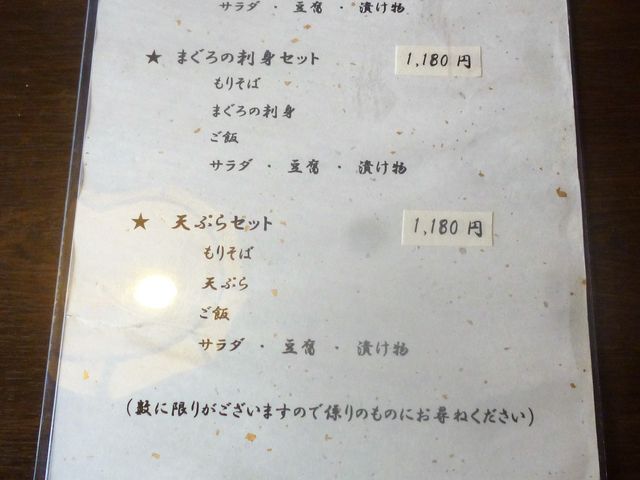 サラダ ・ 豆腐 ・ 漬け物
★ まぐろの刺身セット 1,180円
もりそば
まぐろの刺身
ご飯
サラダ ・ 豆腐 ・ 漬け物
★ 天ぷらセット 1,180円
もりそば
天ぷら
ご飯
サラダ ・ 豆腐 ・ 漬け物
(数に限りがございますので係りのものにお尋ねください)